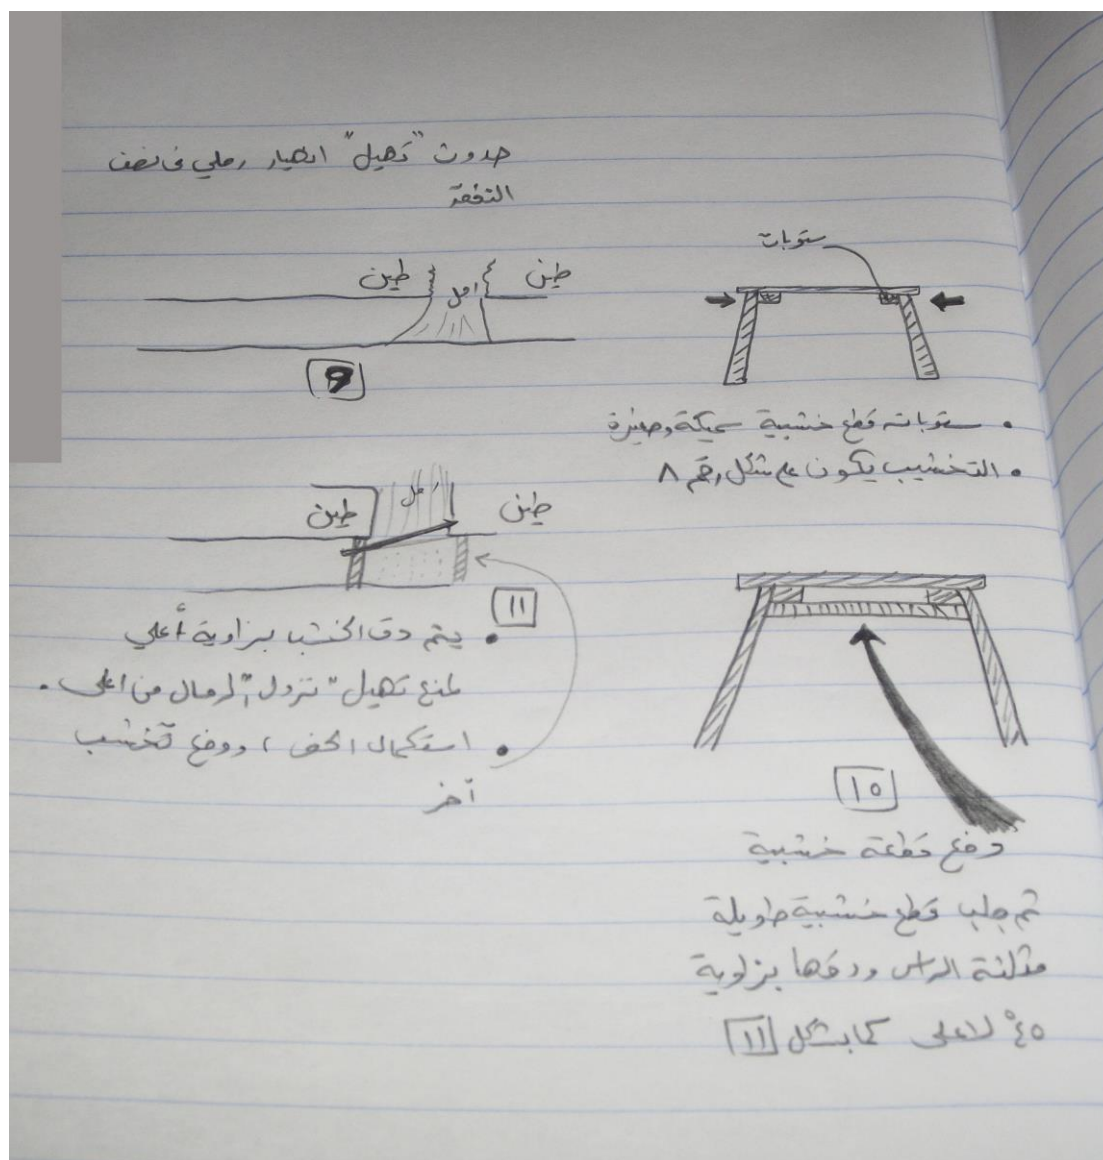 حدوث "تهيل" انهيار رملي في نصف
النفق
طين
رمل
طين
9
ستوبات
• ستوبات قطع خشبية سميكة وصغيرة
• التخشيب يكون على شكل رقم ٨
طين
رمل
طين
١١
• يتم دق الخشب بزاوية أعلى
لمنع تهيل "نزول" الرمال من اعلى .
• استكمال الحفر ، ووضع تخشيب
آخر
١٥
وضع قطعة خشبية
ثم جلب قطع خشبية طويلة
مثلثة الراس ودقها بزاوية
٤٥° لاعلى كما بشكل ١١